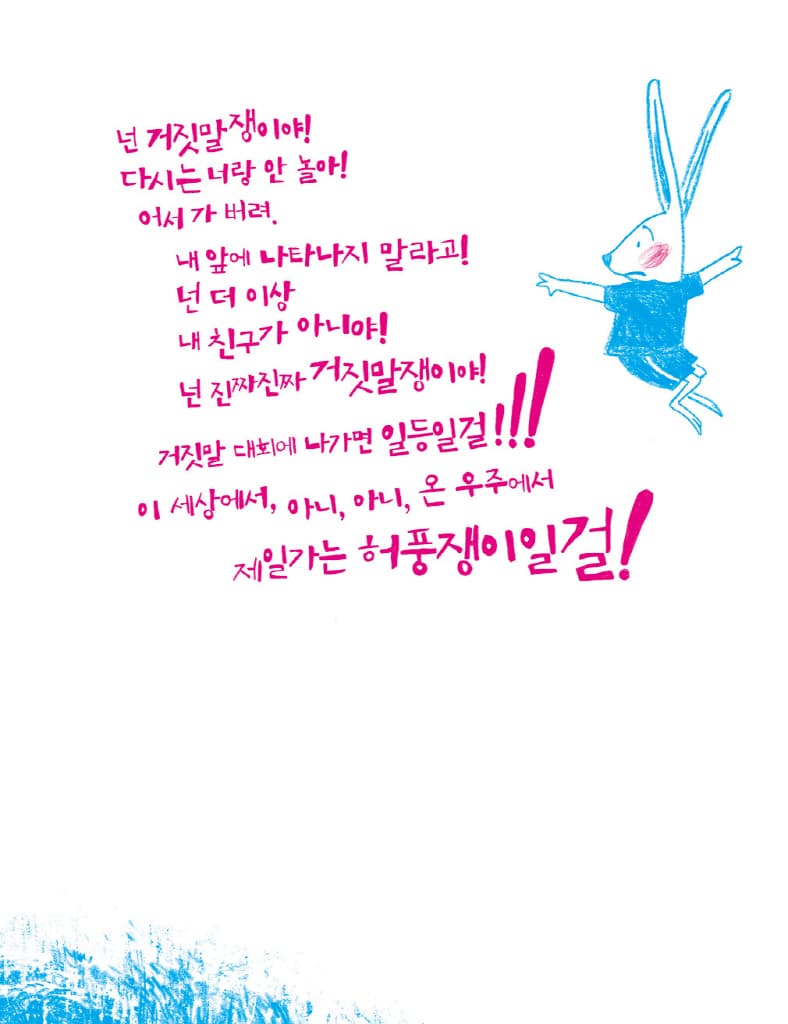 넌 거짓말쟁이야!
다시는 너랑 안 놀아!
어서 가 버려.
내 앞에 나타나지 말라고!
넌 더 이상
내 친구가 아니야!
넌 진짜진짜 거짓말쟁이야!
거짓말 대회에 나가면 일등일걸!!!
이 세상에서, 아니, 아니, 온 우주에서
제일가는 허풍쟁이일걸!